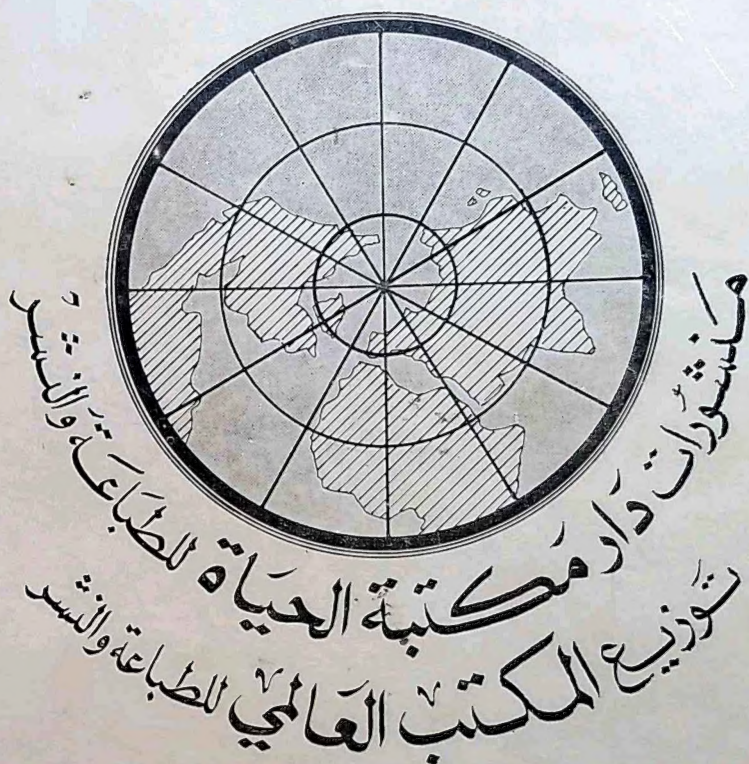 منشورات دار مكتبة الحياة للطباعة والنشر
توزيع المكتب العالمي للطباعة والنشر